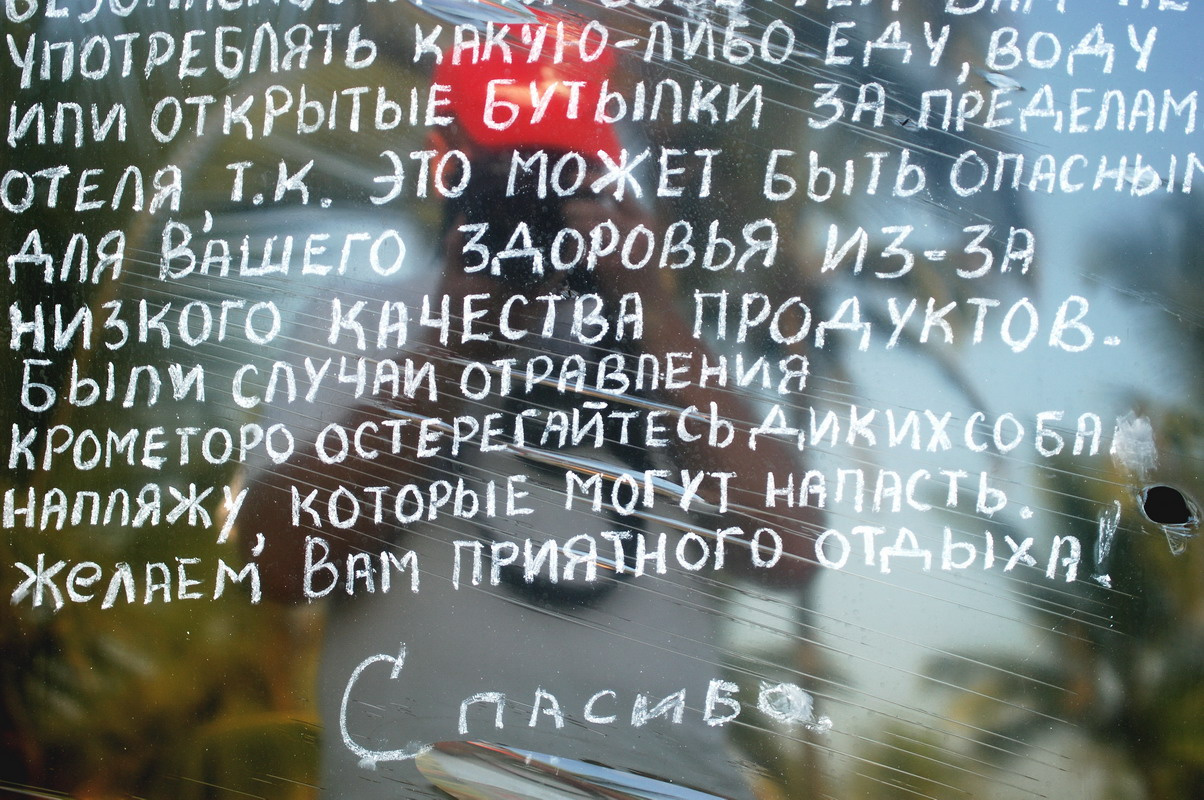 УПОТРЕБЛЯТЬ КАКУЮ-ЛИБО ЕДУ, ВОДУ
ИЛИ ОТКРЫТЫЕ БУТЫЛКИ ЗА ПРЕДЕЛАМ
ОТЕЛЯ, Т.К. ЭТО МОЖЕТ БЫТЬ ОПАСНЫМ
ДЛЯ ВАШЕГО ЗДОРОВЬЯ ИЗ-ЗА
НИЗКОГО КАЧЕСТВА ПРОДУКТОВ.
БЫЛИ СЛУЧАИ ОТРАВЛЕНИЯ
КРОМЕТОРО ОСТЕРЕГАЙТЕСЬ ДИКИХ СОБА
НАПЛЯЖУ, КОТОРЫЕ МОГУТ НАПАСТЬ.
ЖЕЛАЕМ ВАМ ПРИЯТНОГО ОТДЫХА!
СПАСИБО.